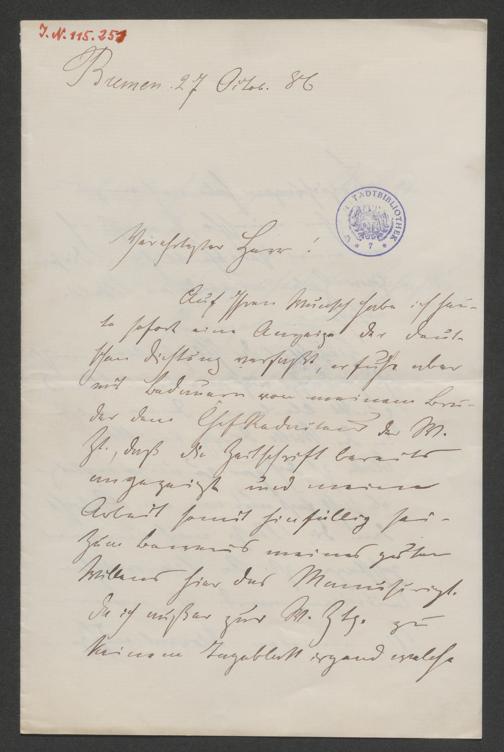 J. N. 115.251
Bremen. 27 Octob. 86
STADTBIBLIOTHEK
Verehrtester Herr!
Auf Ihren Wunsch habe ich heu-
te sofort eine Anzeige der deut-
schen Dichtung verfaßt, erfuhr aber
mit Bedauern von meinem Bru-
der dem Chef Redakteur der W.
Zt., daß die Zeitschrift bereits
angezeigt und meine
Arbeit somit hinfällig sei.
Zum Beweis meines guten
Willens hier das Manuscript.
Da ich außer zur W. Ztg. zu
keinem Tageblatt irgend welche